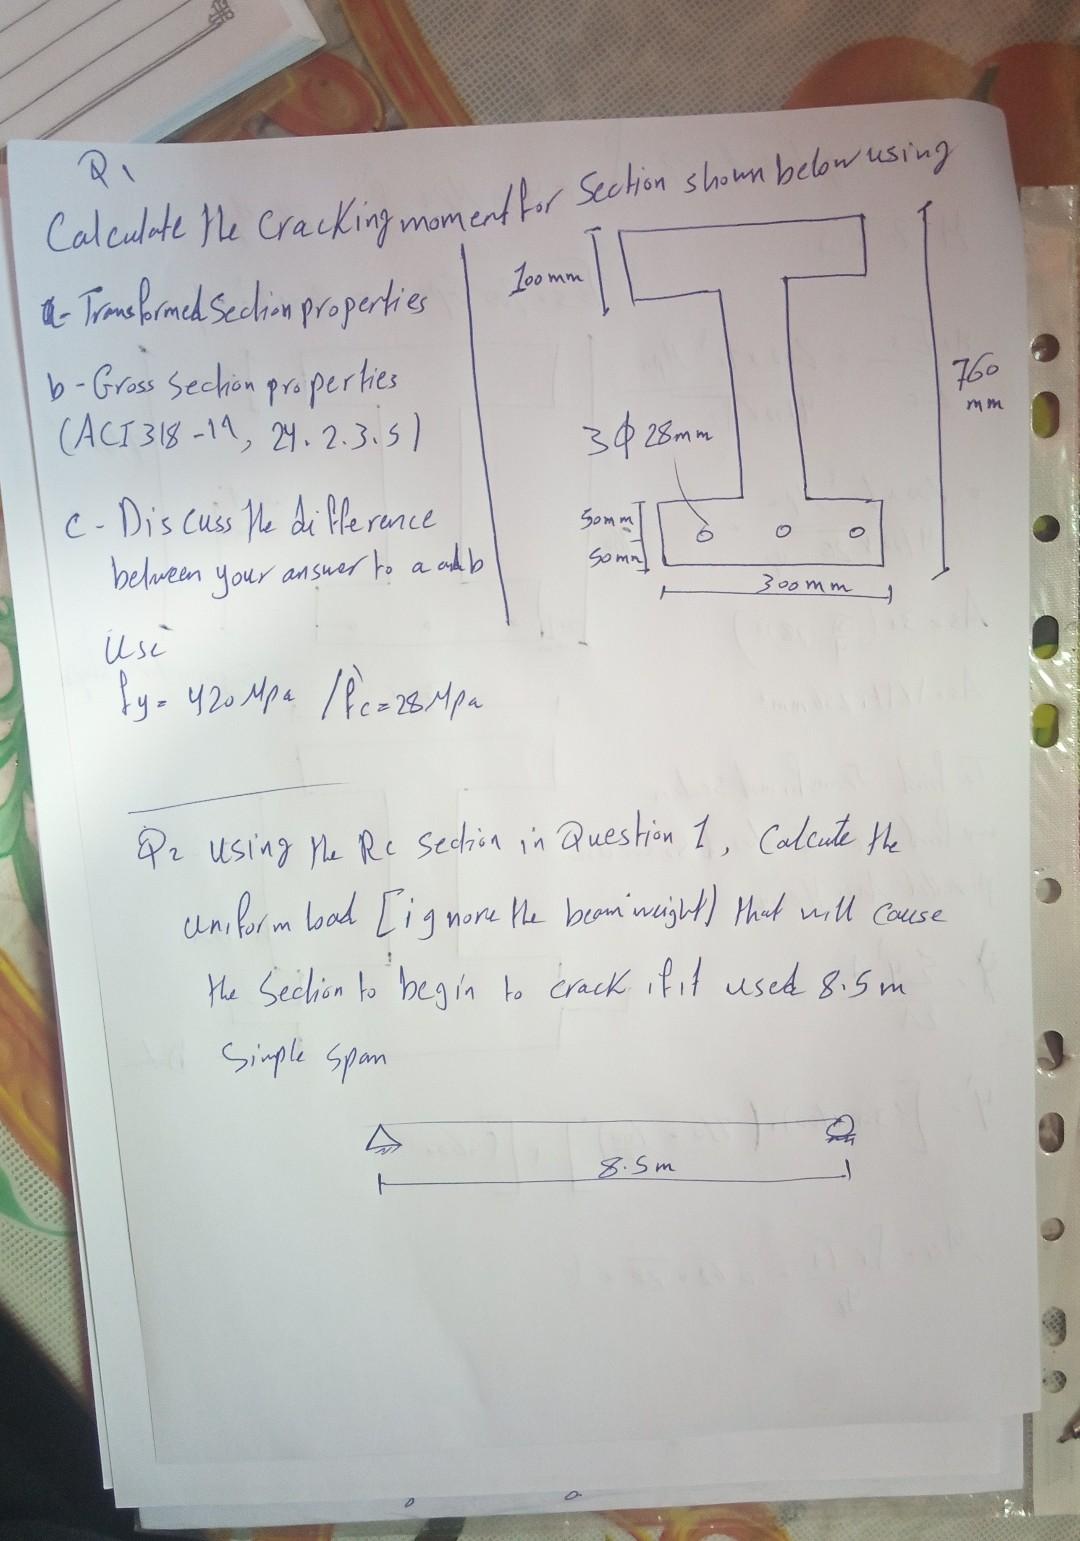 Q1
Calculate the cracking moment for Section shown below using
a- Transformed Section properties
b- Gross Section properties
(ACI 318-19, 24.2.3.5)
c- Discuss the difference
between your answer to a and b
Use
fy= 420 Mpa / f'c=28 Mpa
100mm
760
mm
3ϕ28mm
50mm
50mm
300mm
Q2 using the Rc Section in Question 1, Calcute the
uniform load [ignore the beam weight) that will cause
the Section to begin to crack if it used 8.5m
Simple span
8.5m